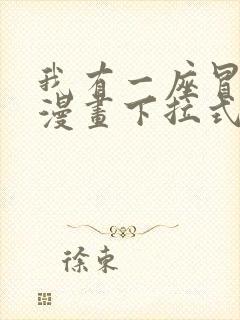 我有一座冒
漫畫下拉式
徐東